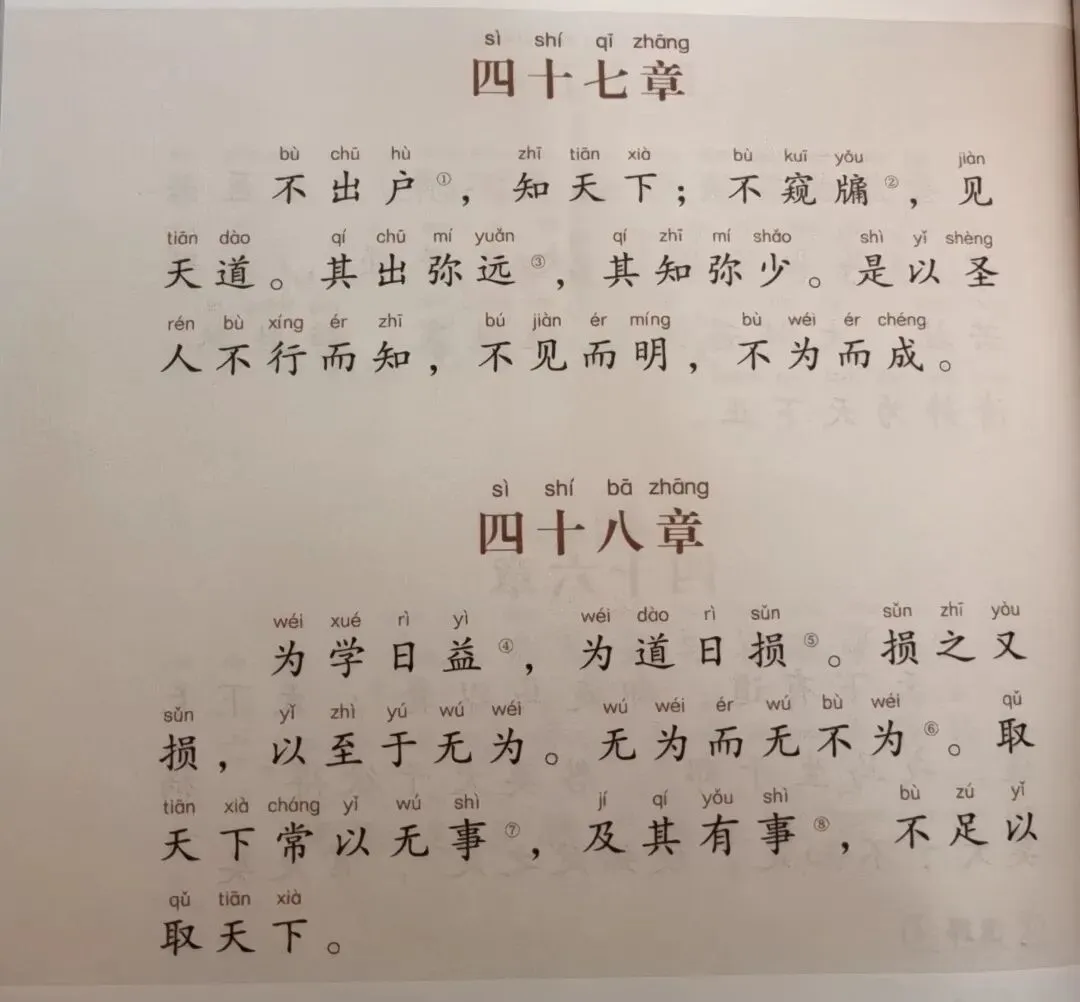 sì shí qī zhāng
四十七章
bù chū hù zhī tiān xià bù kuī yǒu jiàn
不出户①，知天下；不窥牖②，见
tiān dào qí chū mí yuǎn qí zhī mí shǎo shì yǐ shèng
天道。其出弥远③，其知弥少。是以圣
rén bù xíng ér zhī bú jiàn ér míng bù wéi ér chéng
人不行而知，不见而明，不为而成。
sì shí bā zhāng
四十八章
wéi xué rì yì wéi dào rì sǔn sǔn zhī yòu
为学日益④，为道日损⑤。损之又
sǔn yǐ zhì yú wú wéi wú wéi ér wú bù wéi qǔ
损，以至于无为。无为而无不为⑥。取
tiān xià cháng yǐ wú shì jí qí yǒu shì bù zú yǐ
天下常以无事⑦，及其有事⑧，不足以
qǔ tiān xià
取天下。